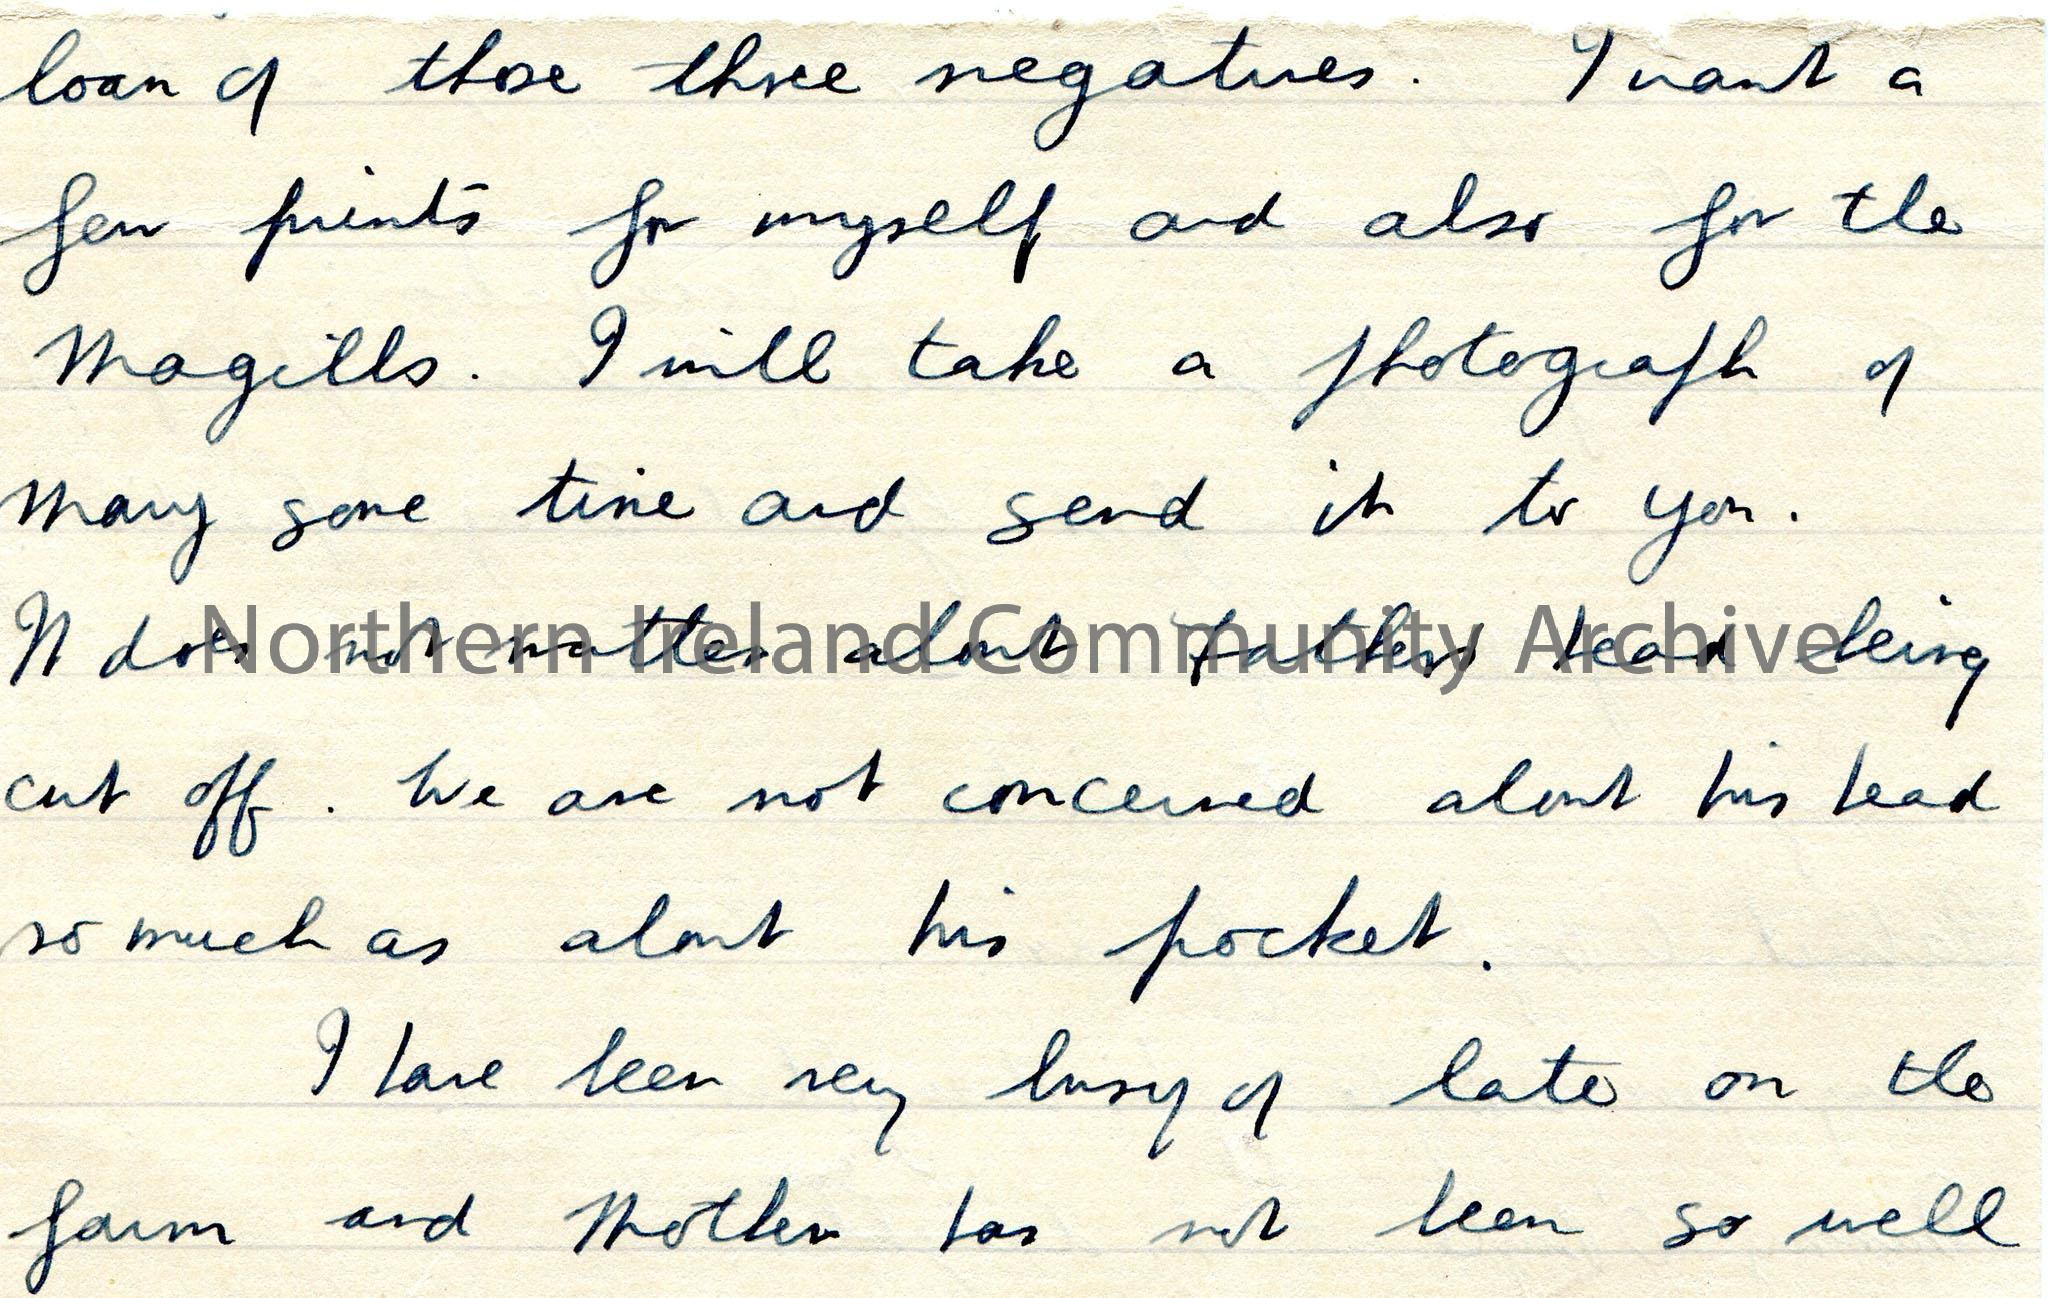 loan of those three negatives. I want a
few prints for myself and also for the
Magills. I will take a photograph of
Mary some time and send it to you.
It does not matter about Fathers head being
cut off. We are not concerned about his head
so much as about his pocket.
I have been very busy of late on the
farm and Mother has not been so well
Northern Ireland Community Archive